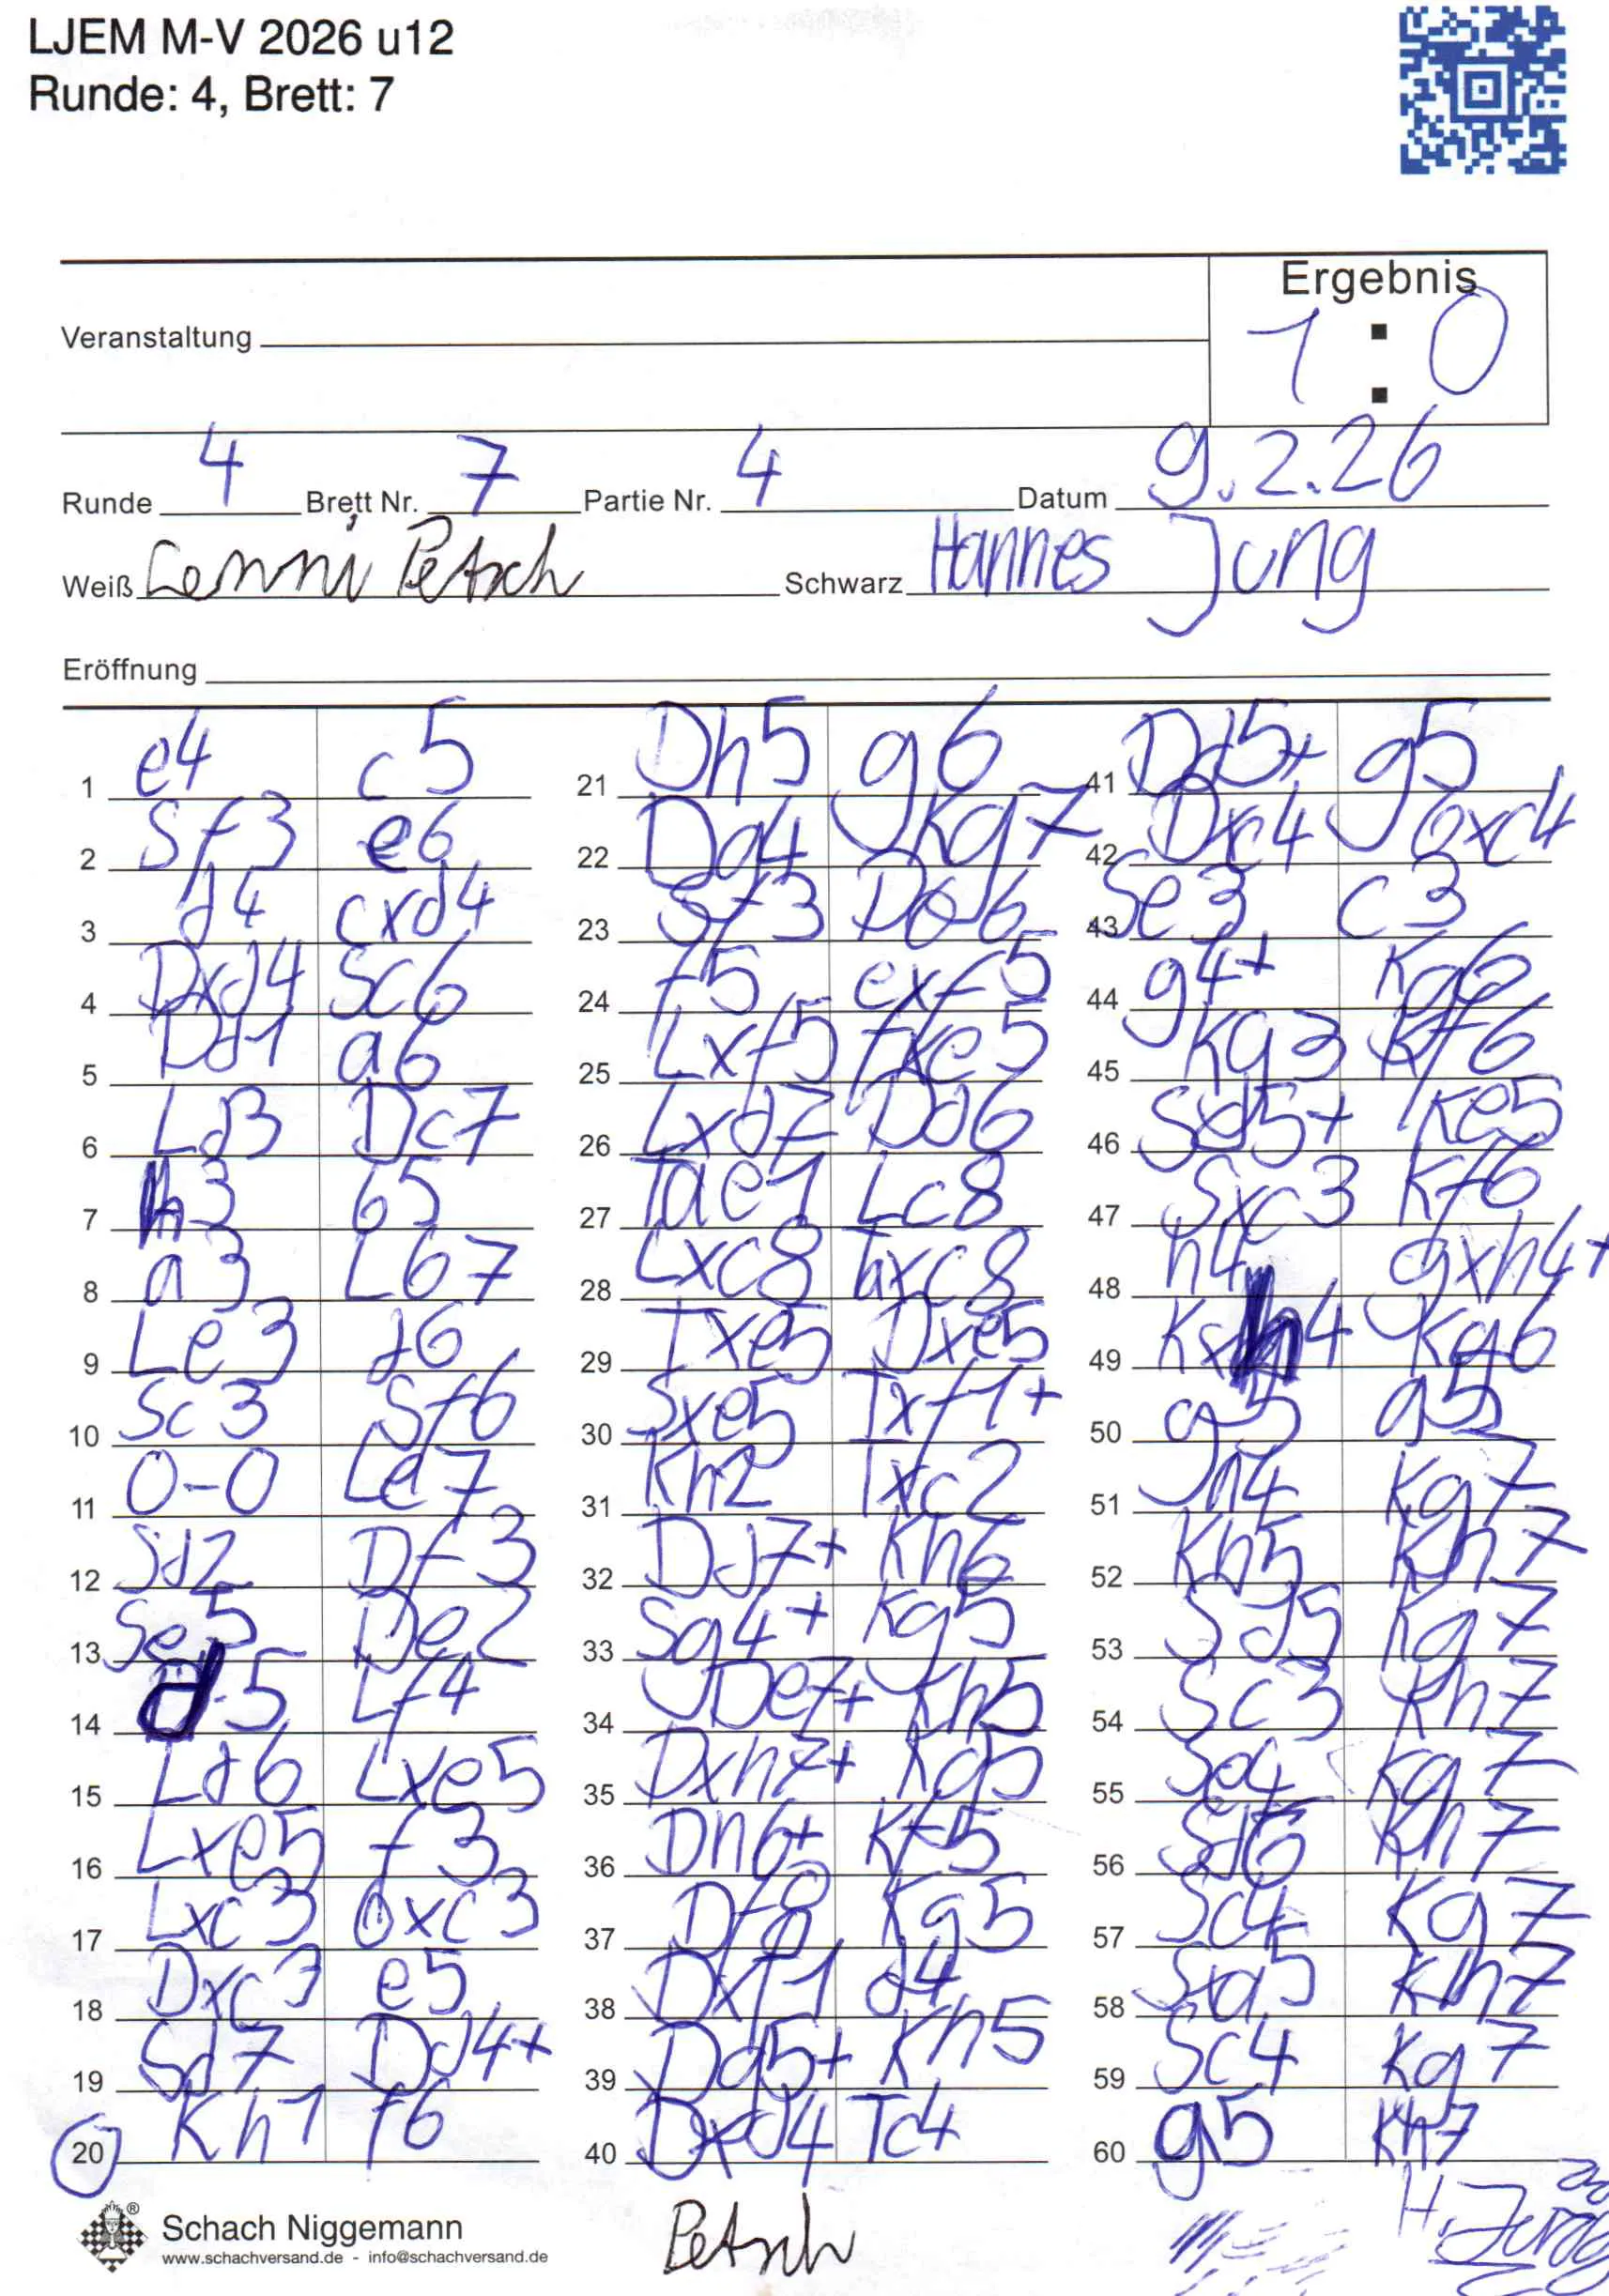 LJEM M-V 2026 u12
Runde: 4, Brett: 7
Ergebnis
1 : 0
Veranstaltung
Runde 4 Brett Nr. 7 Partie Nr. 4 Datum 9.2.26
Weiß Lenni Petsch Schwarz Hannes Jung
Eröffnung
1 e4 c5
2 Sf3 e6
3 d4 cxd4
4 Dxd4 Sc6
5 Dd1 a6
6 Ld3 Dc7
7 h3 b5
8 a3 Lb7
9 Le3 d6
10 Sc3 Sf6
11 0-0 Le7
12 Sd2 Df3
13 Se5 De2
14 d5 Lf4
15 Ld6 Lxe5
16 Lxe5 f3
17 Lxc3 bxc3
18 Dxc3 e5
19 Sd7 Dd4+
20 Kh1 f6
21 Dh5 g6
22 Dg4 Kg7
23 Sf3
24 f5 exf5
25 Lxf5 fxe5
26 Lxd7 Dd6
27 Tae1 Lc8
28 Lxc8 Taxc8
29 Txe5 Dxe5
30 Sxe5 Txf1+
31 Kh2 Txc2
32 Dd7+ Kh6
33 Sg4+ Kg5
34 De7+ Kh5
35 Dxh7+ Kg5
36 Dh6+ Kf5
37 Df8 Kg5
38 Dxf1 d4
39 Dg5+ Kh5
40 Dxd4 Tc4
41 Dd5+ g5
42 Dxc4 bxc4
43 Se3 c3
44 g4+ Kg6
45 Kg3 Kf6
46 Sd5+ Ke5
47 Sxc3 Kf6
48 h4 gxh4+
49 Kxh4 Kg6
50 g5 a5
51 a4 Kg7
52 Kh5 Kh7
53 Sd5 Kg7
54 Sc3 Kh7
55 Se4 Kg7
56 Sd6 Kh7
57 Sc4 Kg7
58 Sxa5 Kh7
59 Sc4 Kg7
60 g5 Kh7
Schach Niggemann
www.schachversand.de - info@schachversand.de
Petsch
H. Jung